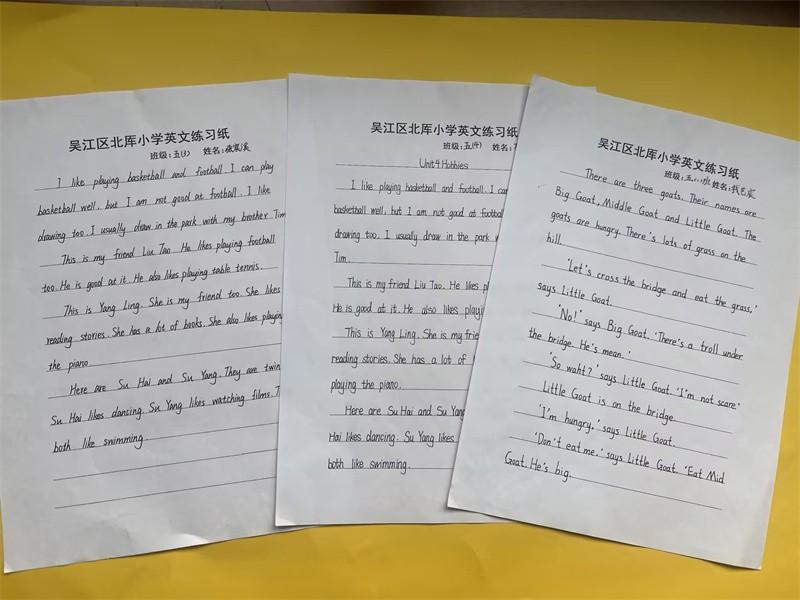 吴江区北厍小学英文练习纸
班级：五(3) 姓名：
I like playing basketball and football. I can play
basketball well, but I am not good at football. I like
drawing too. I usually draw in the park with my brother Tim
This is my friend Liu Tao. He likes playing football
too. He is good at it. He also likes playing table tennis.
This is Yang Ling. She is my friend too. She likes
reading stories. She has a lot of books. She also likes playing
the piano.
Here are Su Hai and Su Yang. They are twin
Su Hai likes dancing. Su Yang likes watching films. T
both like swimming.
吴江区北厍小学英文练习纸
班级：五(4) 姓名：
Unit4 Hobbies
I like playing basketball and football. I can
basketball well, but I am not good at football
drawing too. I usually draw in the park w
Tim.
This is my friend Liu Tao. He likes p
He is good at it. He also likes playi
This is Yang Ling. She is my frie
reading stories. She has a lot of
playing the piano.
Here are Su Hai and Su Yang
Hai likes dancing. Su Yang likes
both like swimming.
吴江区北厍小学英文练习纸
班级：五 班 姓名：
There are three goats. Their names are
Big Goat, Middle Goat and Little Goat. The
goats are hungry. There's lots of grass on the
hill.
'Let's cross the bridge and eat the grass,'
says Little Goat.
'No!' says Big Goat. 'There's a troll under
the bridge. He's mean.'
'So waht?' says Little Goat. 'I'm not scare'
Little Goat is on the bridge
'I'm hungry,' says Little Goat.
'Don't eat me,' says Little Goat. 'Eat Mid
Goat. He's big.